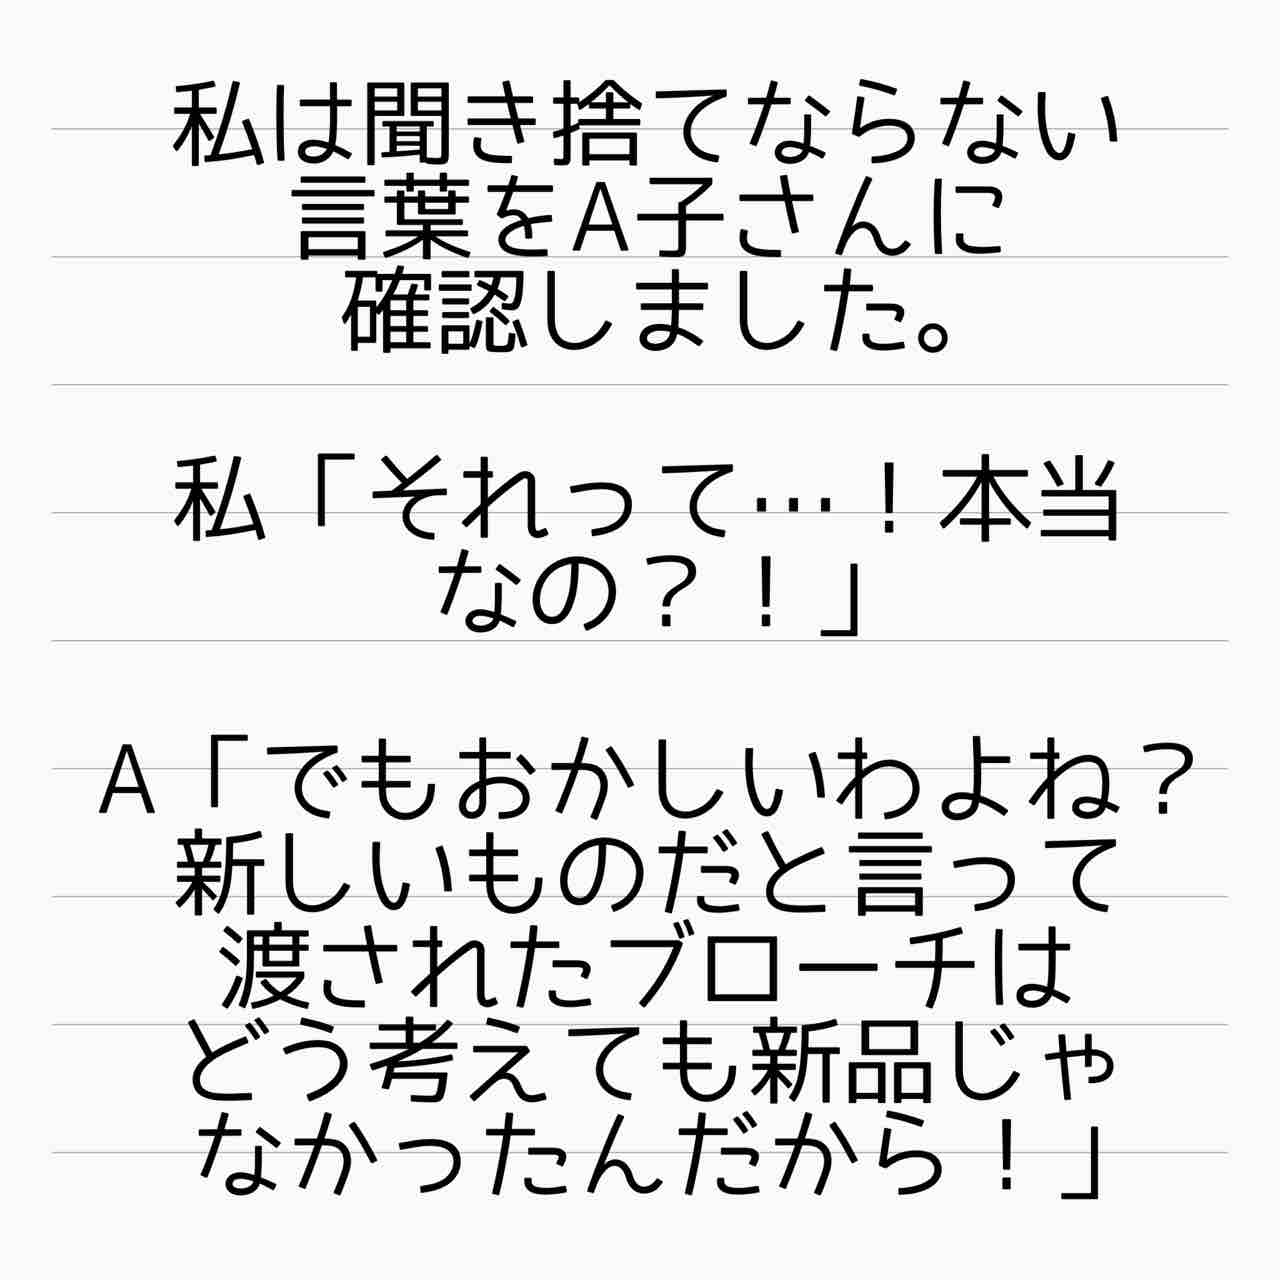 私は聞き捨てならない
言葉をA子さんに
確認しました。
私「それって…！本当
なの？！」
A「でもおかしいわよね？
新しいものだと言って
渡されたブローチは
どう考えても新品じゃ
なかったんだから！」